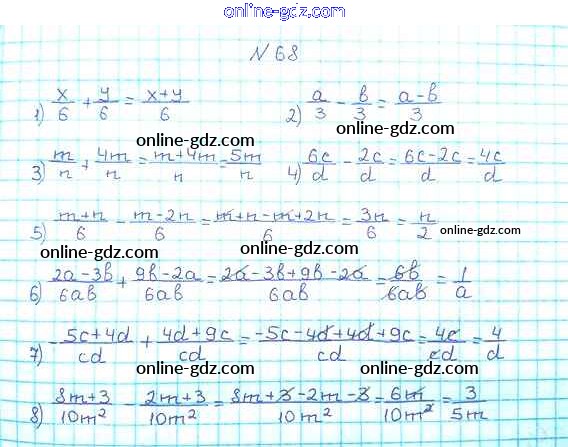 online-gdz.com
№68
1) x/6 + y/6 = x+y/6 2) a/3 - в/3 = a-в/3
online-gdz.com online-gdz.com
3) m/n + 4m/n = m+4m/n = 5m/n 4) 6c/d - 2c/d = 6c-2c/d = 4c/d
online-gdz.com
5) m+n/6 - m-2n/6 = m+n-m+2n/6 = 3n/6 = n/2 online-gdz.com
online-gdz.com
6) 2a-3в/6aв + 9в-2a/6aв = 2a-3в+9в-2a/6aв = 6в/6aв = 1/a
online-gdz.com
7) - 5c+4d/cd + 4d+9c/cd = -5c-4d+4d+9c/cd = 4c/cd = 4/d
online-gdz.com online-gdz.com
8) 8m+3/10m² - 2m+3/10m² = 8m+3-2m-3/10m² = 6m/10m² = 3/5m